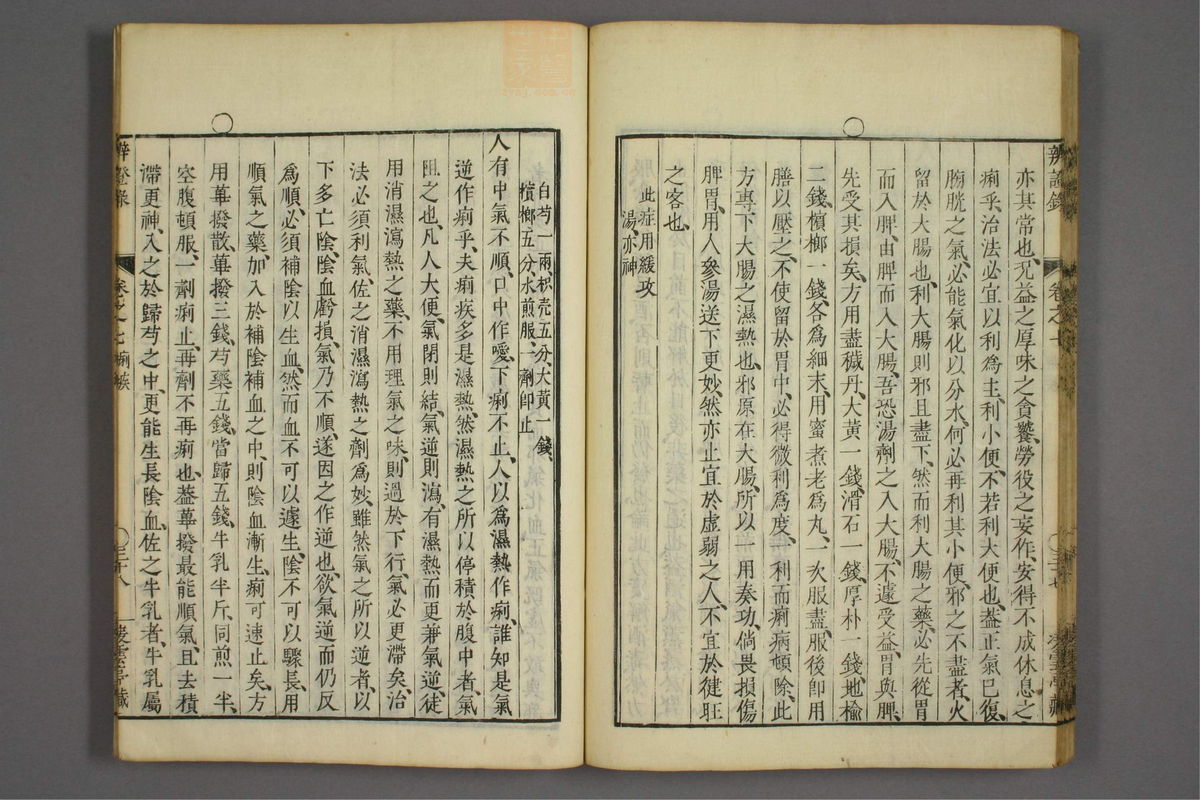 亦其常也、尤益之厚味之貪饕、勞役之妄作、安得不成休息之
痢乎、治法必宜以利爲主、利小便、不若利大便也、蓋正氣已復、
膀胱之氣、必能氣化以分水、何必再利其小便、邪之不盡者、火
留於大腸也、利大腸則邪且盡下、然而利大腸之藥、必先從胃
而入脾、由脾而入大腸、吾恐湯劑之入大腸、不遽受益、胃與脾、
先受其損矣、方用盡穢丹、大黃一錢、滑石一錢、厚朴一錢、地榆
二錢、檳榔一錢、各爲細末、用蜜煮老爲丸、一次服盡、服後卽用
膳以壓之、不使留於胃中、必得微利爲度、一利而痢病頓除、此
方專下大腸之濕熱也、邪原在大腸、所以一用奏功、倘畏損傷
脾胃、用人參湯送下更妙、然亦止宜於虛弱之人、不宜於健旺
之客也、
此症用緩攻
湯、亦神
白芍一兩、枳壳五分、大黃一錢、
檳榔五分、水煎服、一劑卽止
人有中氣不順、口中作噯、下痢不止、人以爲濕熱作痢、誰知是氣
逆作痢乎、夫痢疾多是濕熱、然濕熱之所以停積於腹中者、氣
阻之也、凡人大便、氣閉則結、氣逆則瀉、有濕熱而更兼氣逆、徒
用消濕瀉熱之藥、不用理氣之味、則過於下行、氣必更滯矣、治
法必須利氣、佐之消濕瀉熱之劑爲妙、雖然氣之所以逆者、以
下多亡陰、陰血虧損、氣乃不順、遂因之作逆也、欲氣逆而仍反
爲順、必須補陰以生血、然而血不可以遽生、陰不可以驟長、用
順氣之藥、加入於補陰補血之中、則陰血漸生、痢可速止矣、方
用蓽撥散、蓽撥三錢、芍藥五錢、當歸五錢、牛乳半斤、同煎一半、
空腹頓服、一劑痢止、再劑不再痢也、蓋蓽撥最能順氣、且去積
滯更神、入之於歸芍之中、更能生長陰血、佐之牛乳者、牛乳屬
辨證錄 卷之七 痢疾 三十八